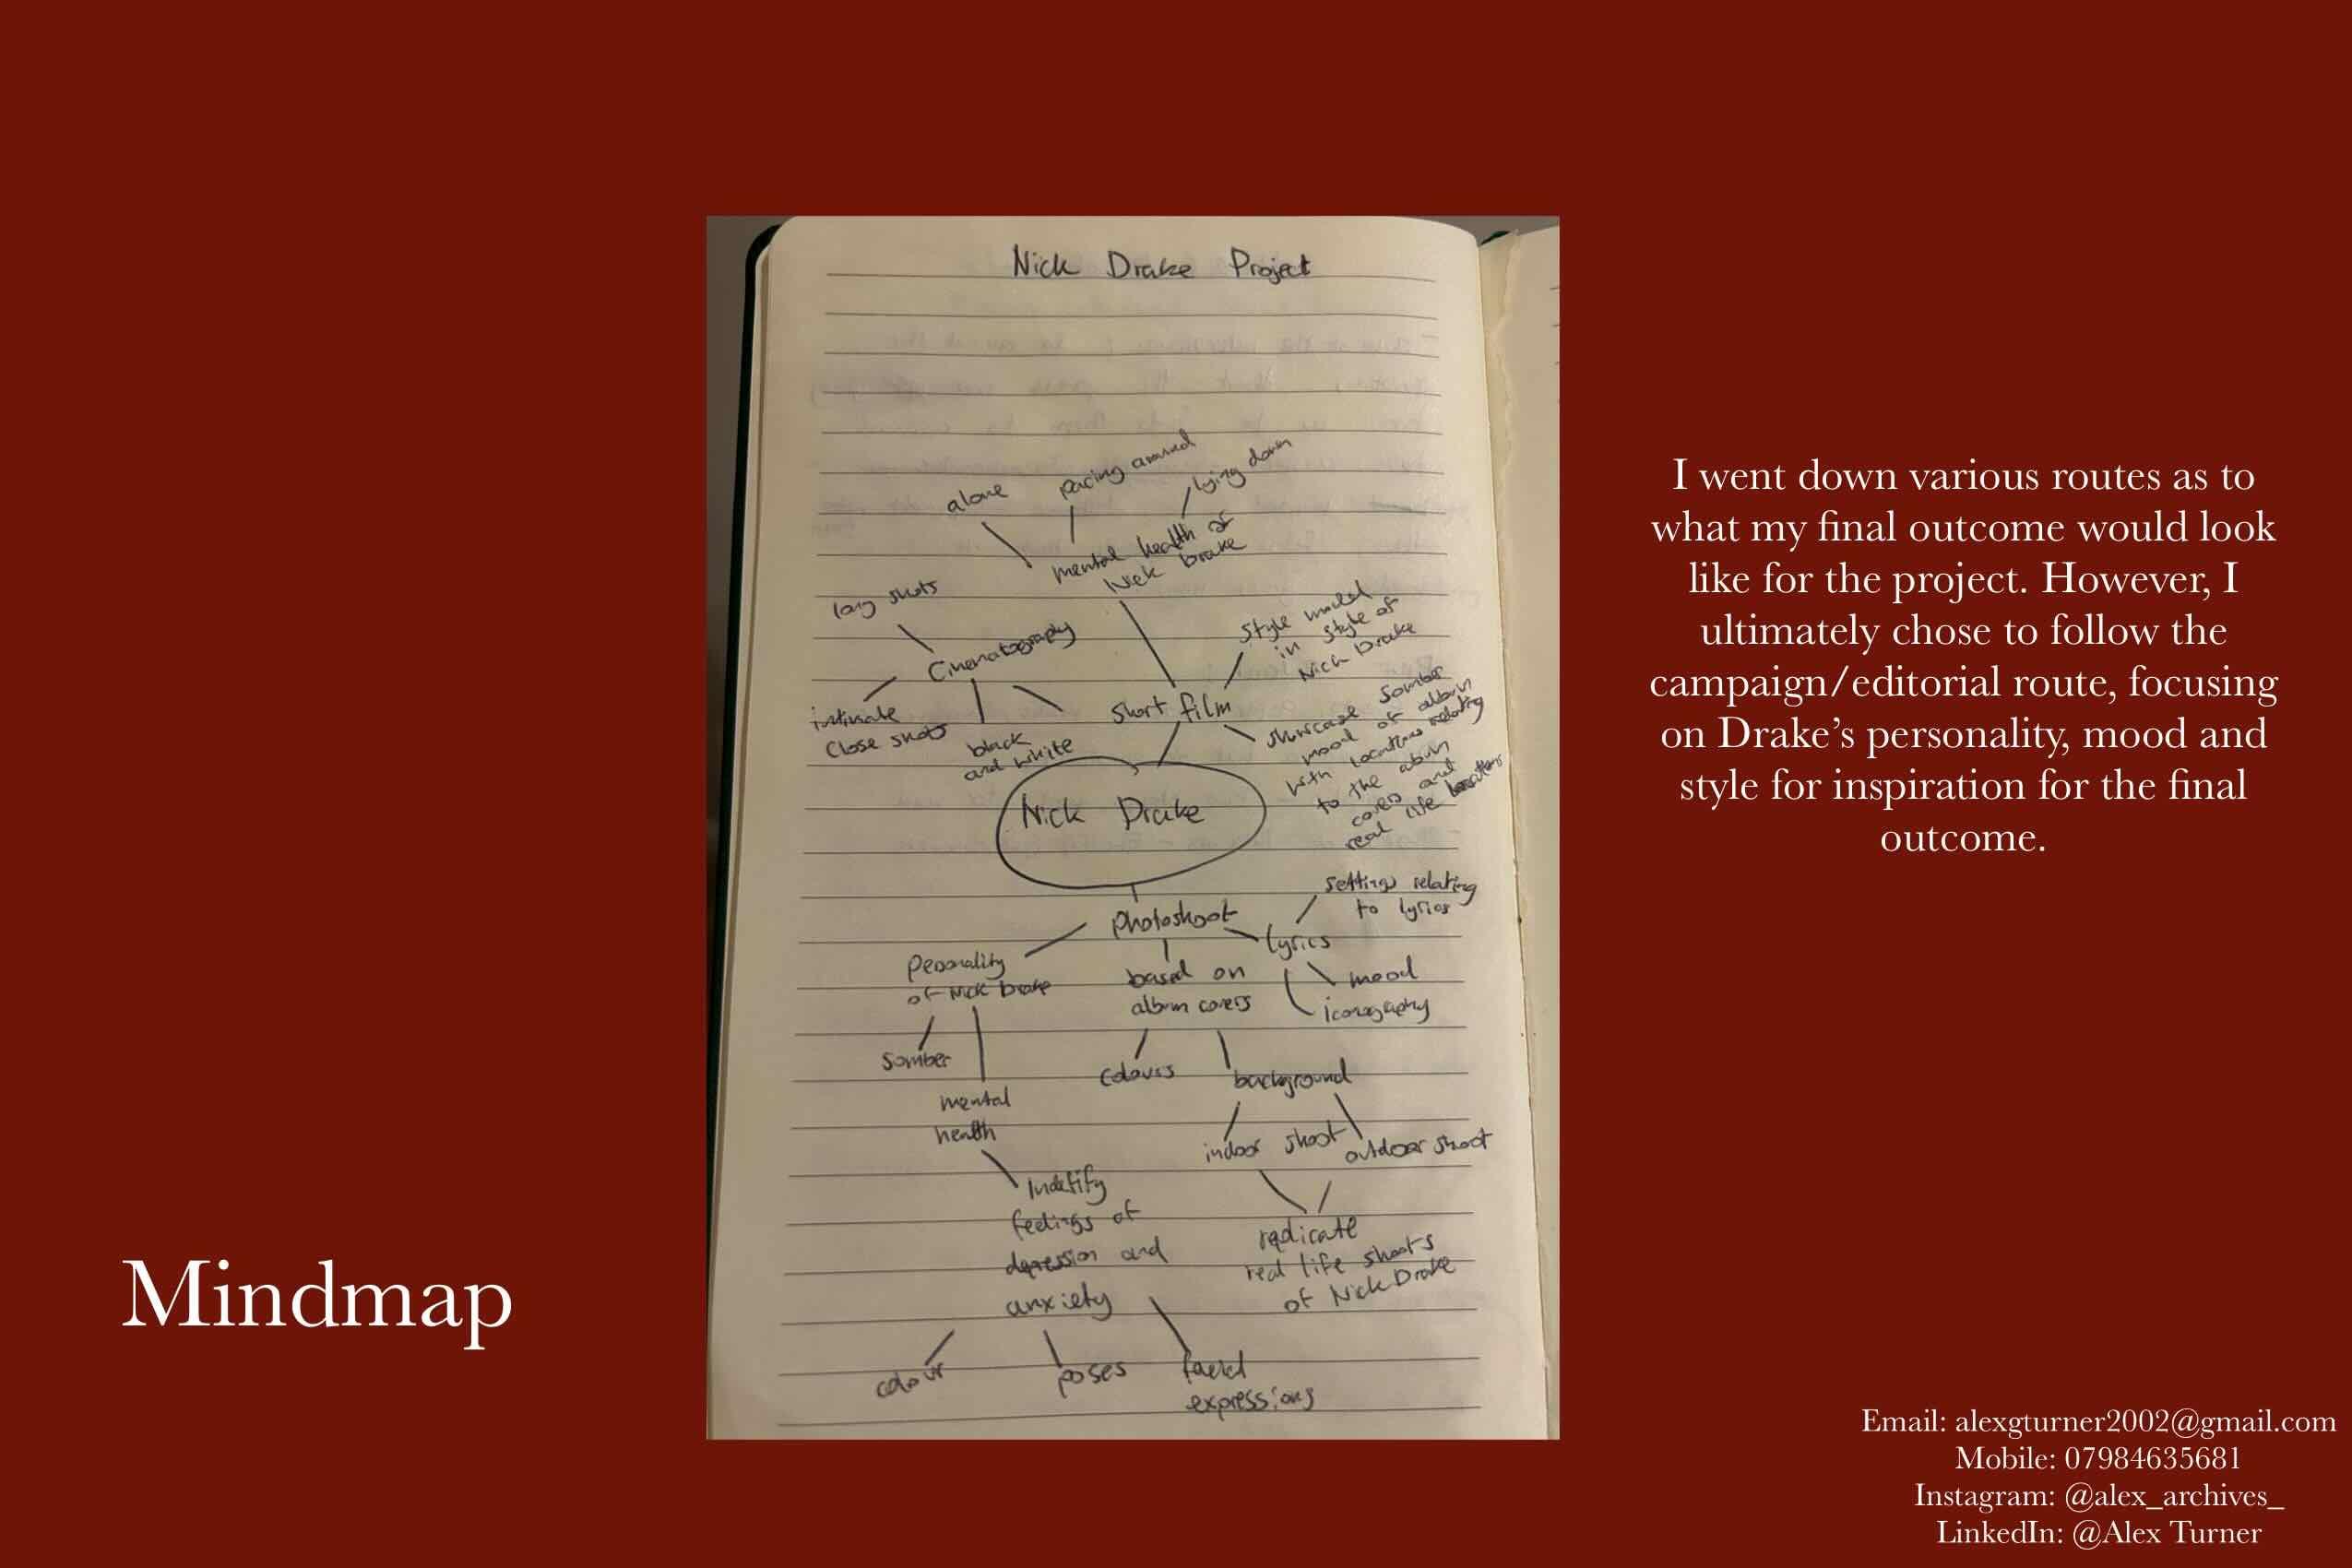 Nick Drake Project
alone
pacing around
lying down
mental health of
Nick Drake
long shots
Cinematography
intimate
close shots
black
and white
style model
in style of
Nick Drake
short film
showcase somber
mood of album
with locations relating
to the album
covers and
real life
Nick Drake
photoshoot
settings relating
to lyrics
lyrics
mood
iconography
Personality
of Nick Drake
based on
album covers
somber
mental
health
colours
background
indoor shoot
outdoor shoot
Indetify
feelings of
depression and
anxiety
redicate
real life shoots
of Nick Drake
colour
poses
facial
expressions
I went down various routes as to
what my final outcome would look
like for the project. However, I
ultimately chose to follow the
campaign/editorial route, focusing
on Drake’s personality, mood and
style for inspiration for the final
outcome.
Mindmap
Email: alexgturner2002@gmail.com
Mobile: 07984635681
Instagram: @alex_archives_
LinkedIn: @Alex Turner